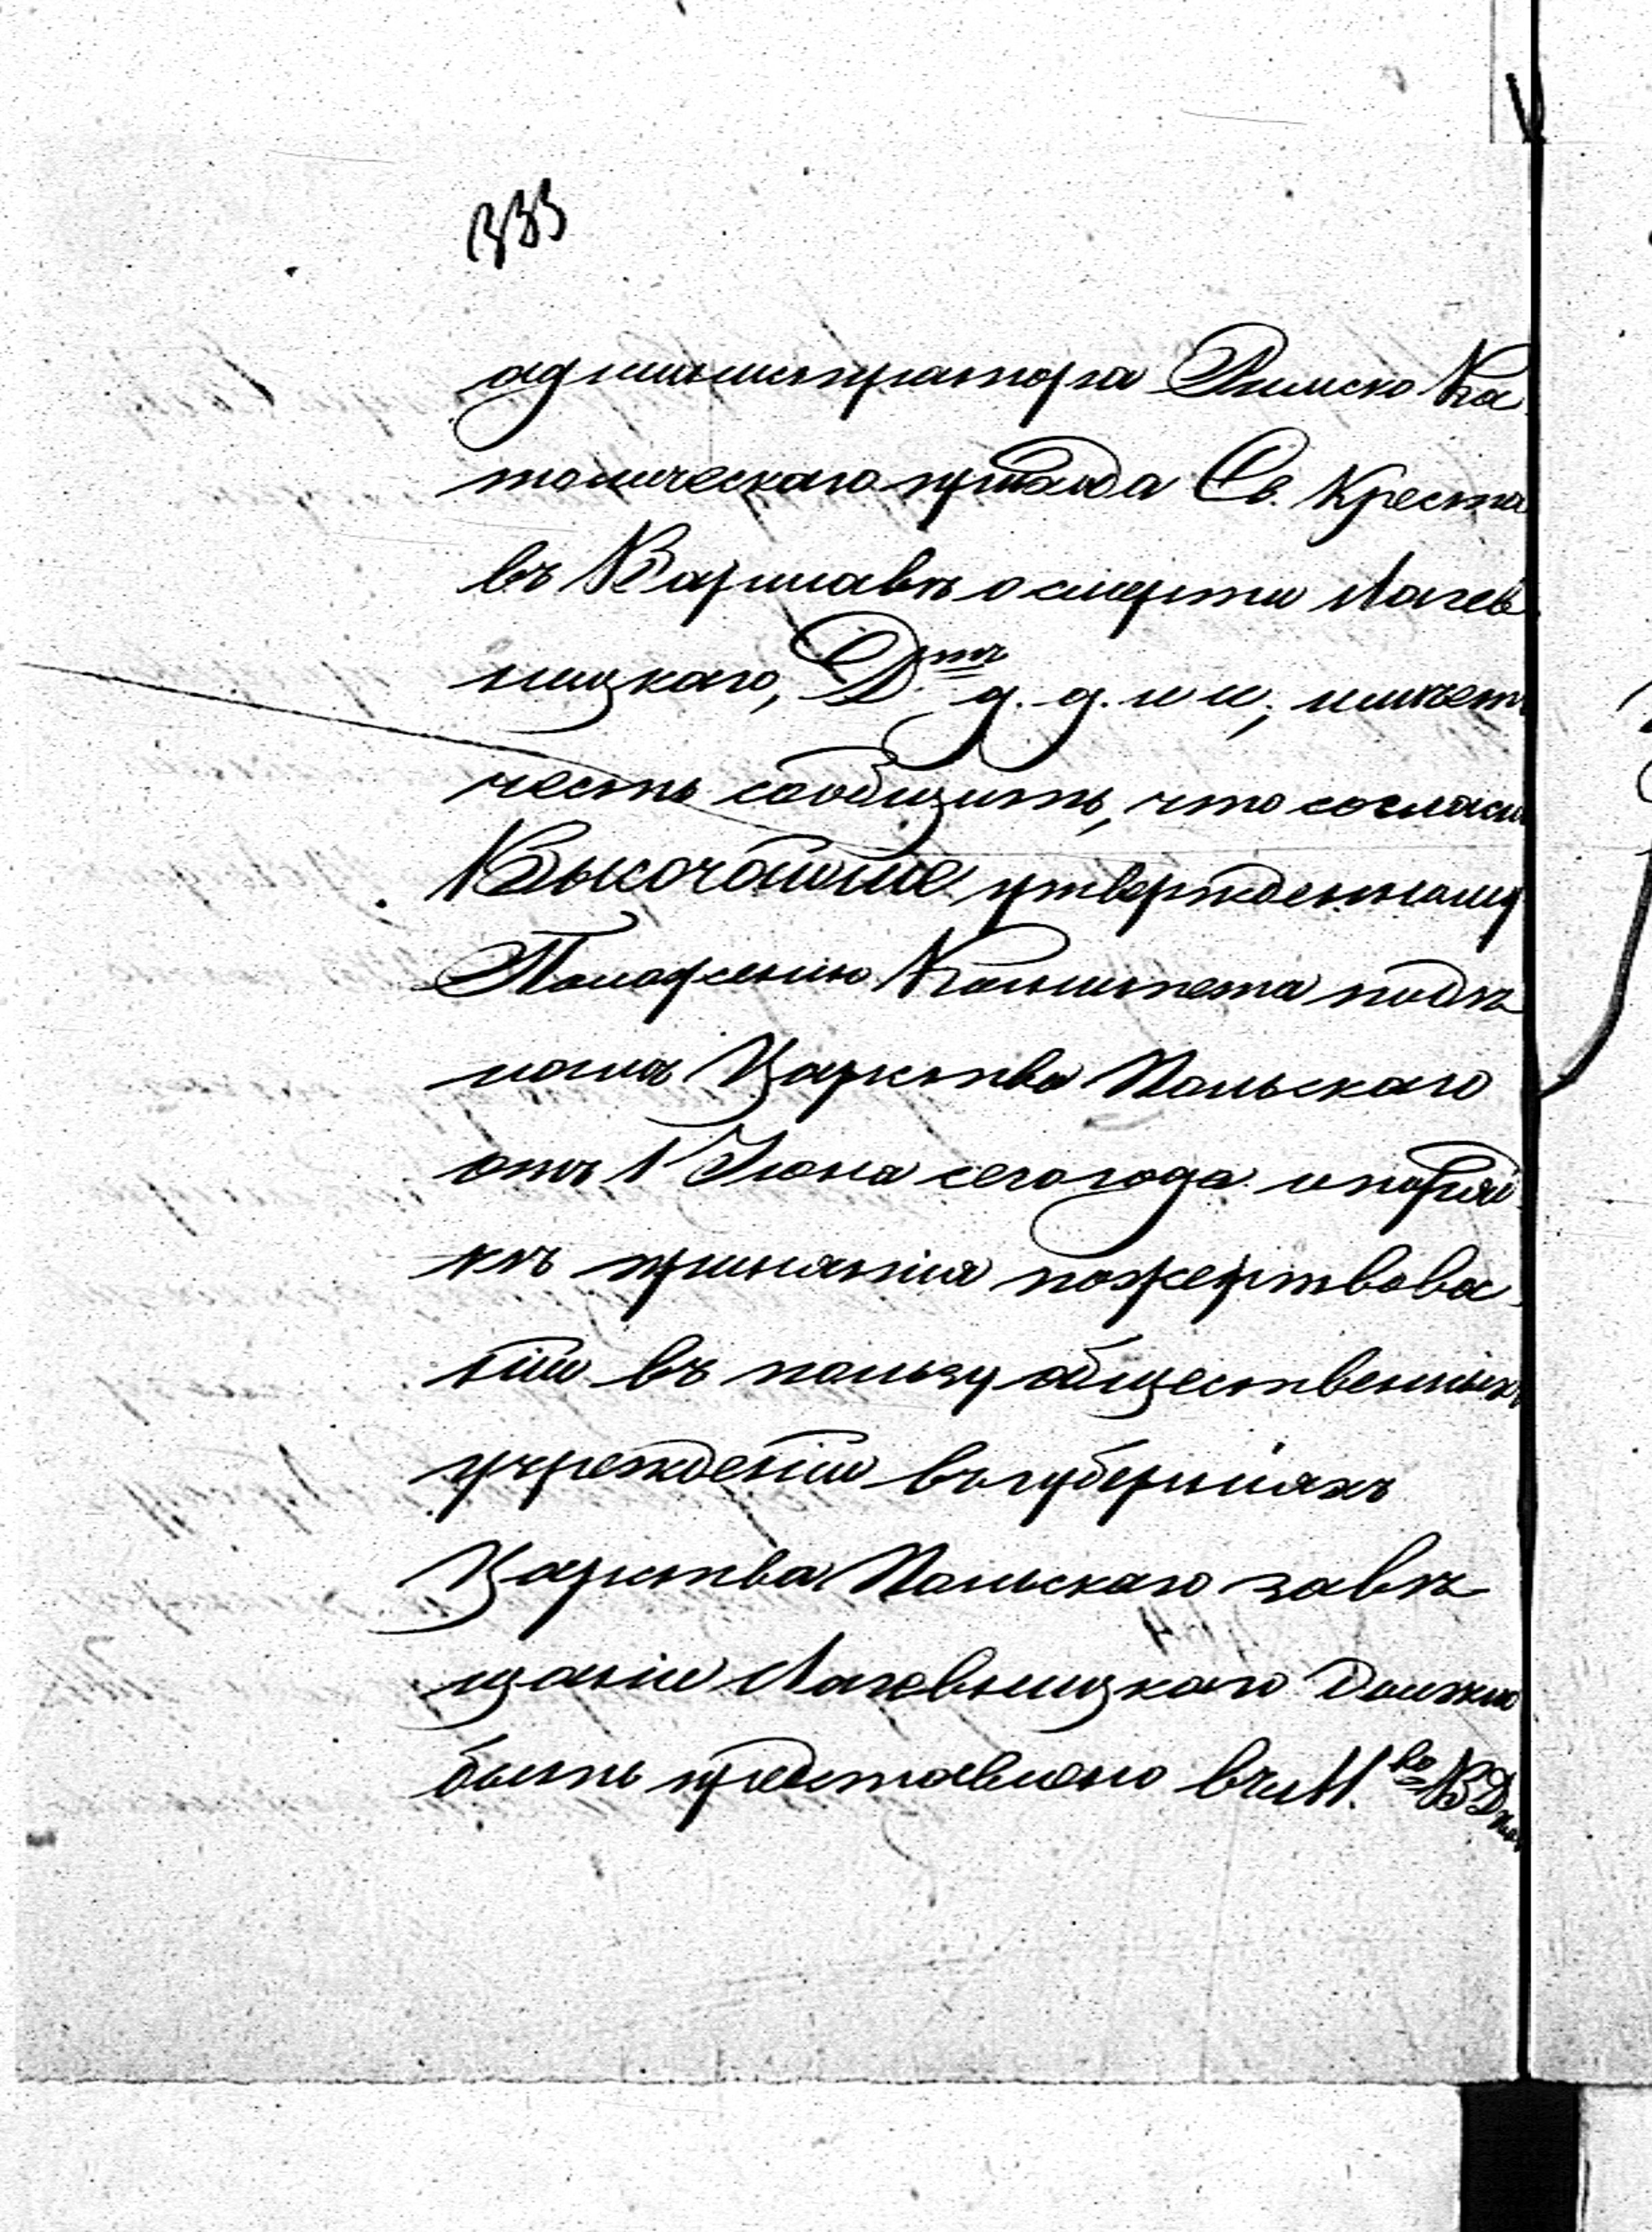 333
администратора Римско Ка
толическаго прихода Св. Креста
въ Варшавѣ о смерти Лагев
ницкаго, Д.тъ д. д. и и., имѣетъ
честь сообщить, что согласно
Высочайше утвержденному
Положению Комитета по дѣ
ламъ Царства Польскаго
отъ 1 Июня сего года о поряд
кѣ принятия пожертвова
ній въ пользу общественныхъ
учрежденій въ губерніяхъ
Царства Польскаго завѣ
щаніе Лагевницкаго должно
быть представлено въ М.во В Д